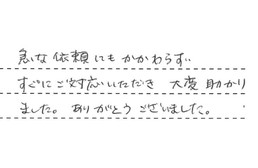 急な依頼にもかかわらず
すぐにご対応いただき 大変助かり
ました。ありがとうございました。